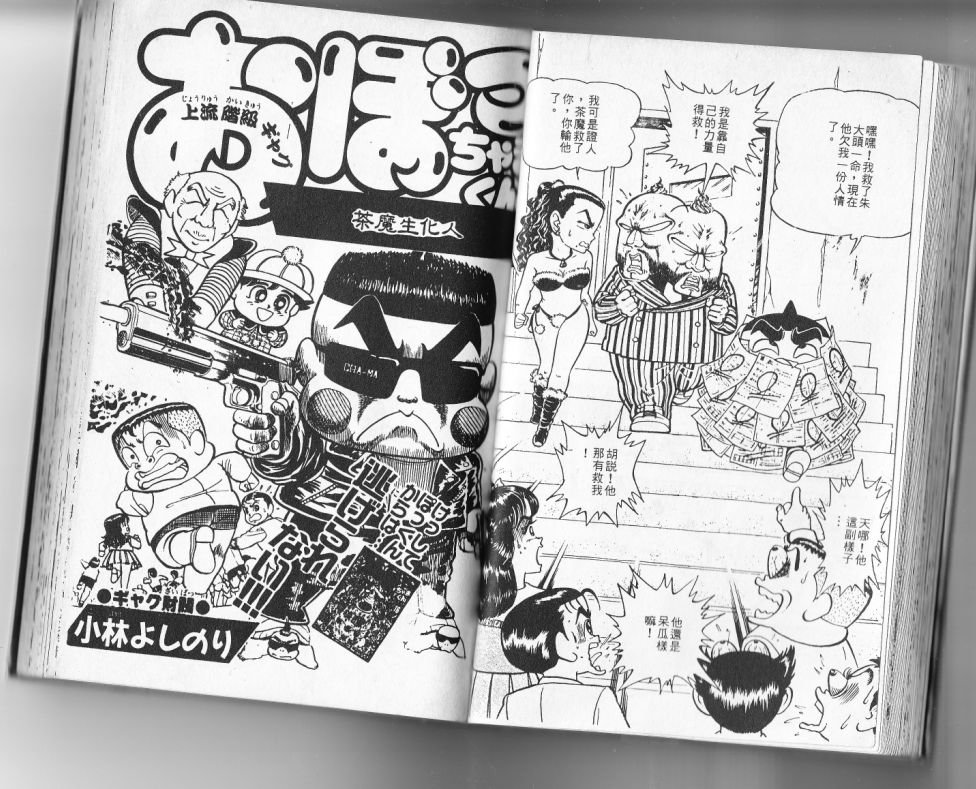 おぼっ
ちゃ
くん
じょうりゅう かいきゅう
上流階級
ギャグ
茶魔生化人
CHA-MA
逃げられ
ない!!!
●ギャグ財閥●
小林よしのり
嘿嘿！我救了朱
大頭一命，現在
他欠我一份人情
了。
我是靠自
己的力量
得救！
我可是證人
，茶魔救了
你，你輸他
了。
胡說！他
那有救我
！
天哪！他
這副樣子
…
他還是
呆瓜樣
嘛！